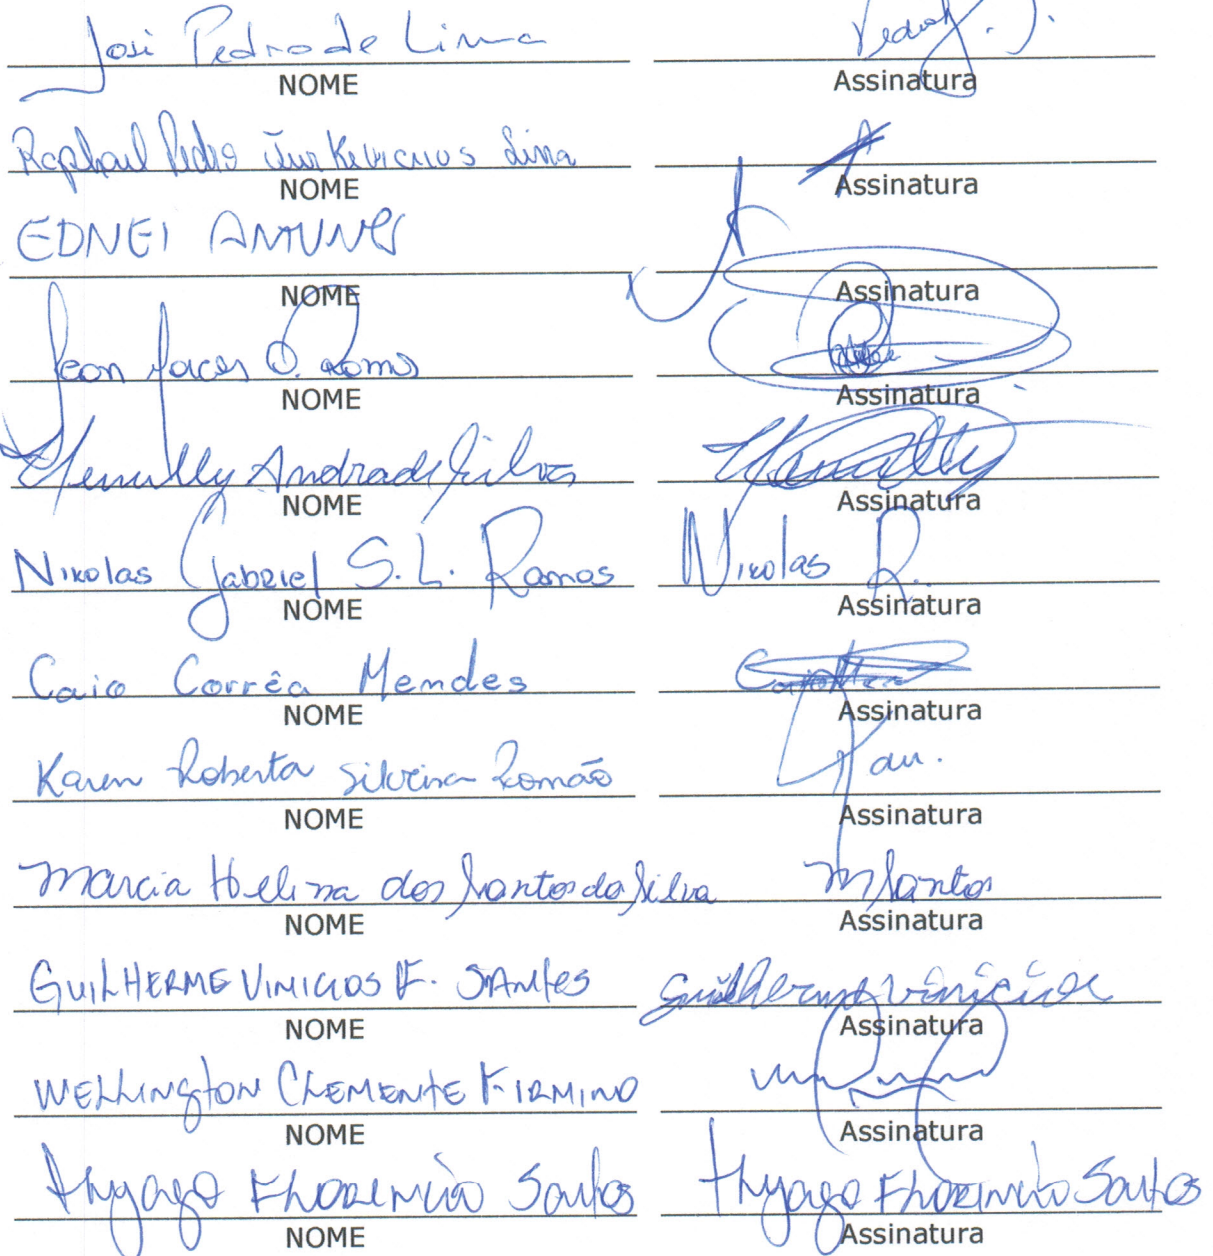 José Pedro de Lima
NOME Assinatura
Raphael Pedro Jurkevicius Lima
NOME Assinatura
EDNEI ANTUNES
NOME Assinatura
Jean Jaces O. Ramos
NOME Assinatura
Hemully Andrade Silva Hemully
NOME Assinatura
Nikolas Gabriel S. L. Ramos Nikolas R.
NOME Assinatura
Caio Corrêa Mendes
NOME Assinatura
Karen Roberta Silveira Romão Kau.
NOME Assinatura
Marcia Helena dos Santos da Silva M Santos
NOME Assinatura
GUILHERME VINICIOS F. SANTOS Guilherme Vinicios
NOME Assinatura
WELLINGTON CLEMENTE FIRMINO
NOME Assinatura
Thyago Florencio Santos Thyago Florencio Santos
NOME Assinatura